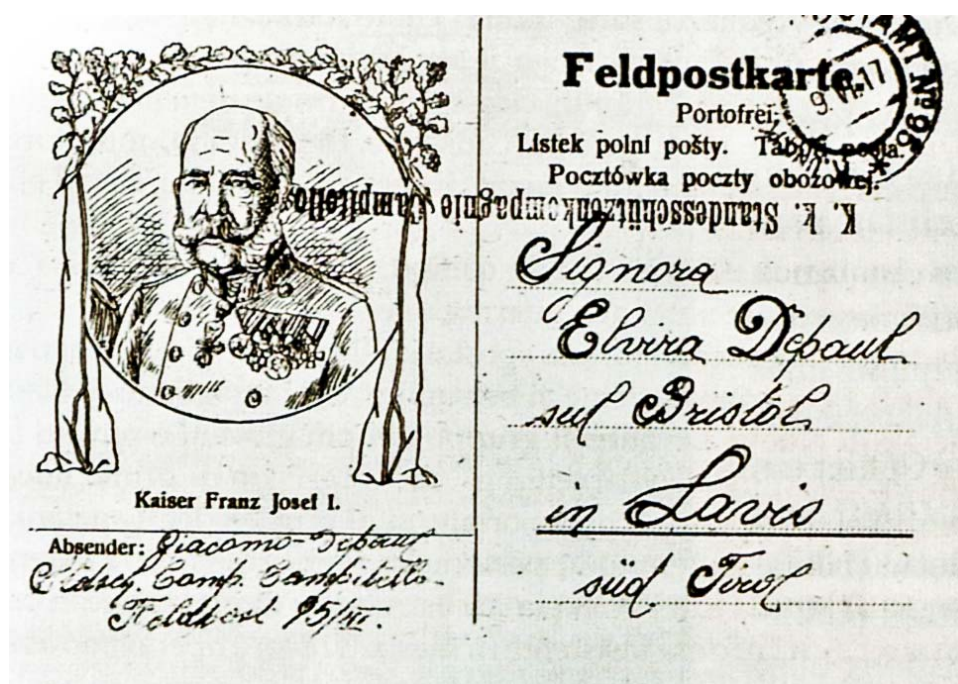 Feldpostkarte.
Portofrei.
Listek polní pošty. Tábori posta.
Pocztówka poczty obozowej.
K. K. Standesschützenkompagnie Campitello
9 17
Signora
Elvira Depaul
sul Bristol
in Lavis
süd Tirol
Kaiser Franz Josef I.
Absender: Giacomo Depaul
Comp. Campitello
Feldpost 95/